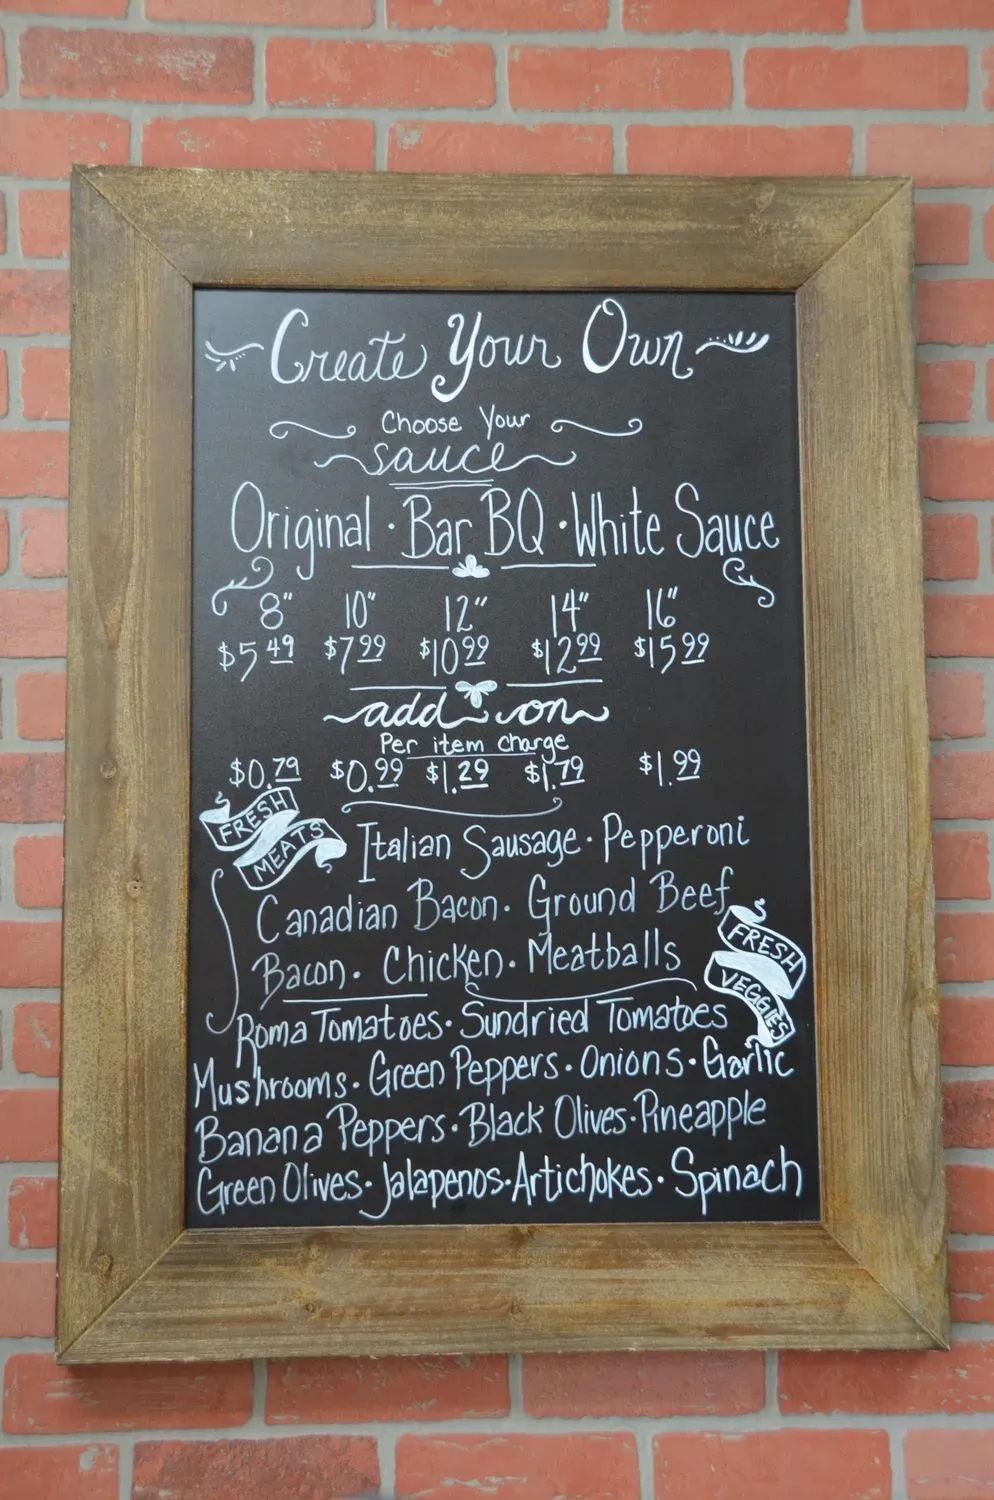 Create Your Own
Choose Your
sauce
Original · Bar BQ · White Sauce
8" 10" 12" 14" 16"
$5.49 $7.99 $10.99 $12.99 $15.99
add-on
Per item charge
$0.79 $0.99 $1.29 $1.79 $1.99
FRESH
MEATS
Italian Sausage · Pepperoni
Canadian Bacon · Ground Beef
Bacon · Chicken · Meatballs
FRESH
VEGGIES
Roma Tomatoes · Sundried Tomatoes
Mushrooms · Green Peppers · Onions · Garlic
Banana Peppers · Black Olives · Pineapple
Green Olives · Jalapenos · Artichokes · Spinach